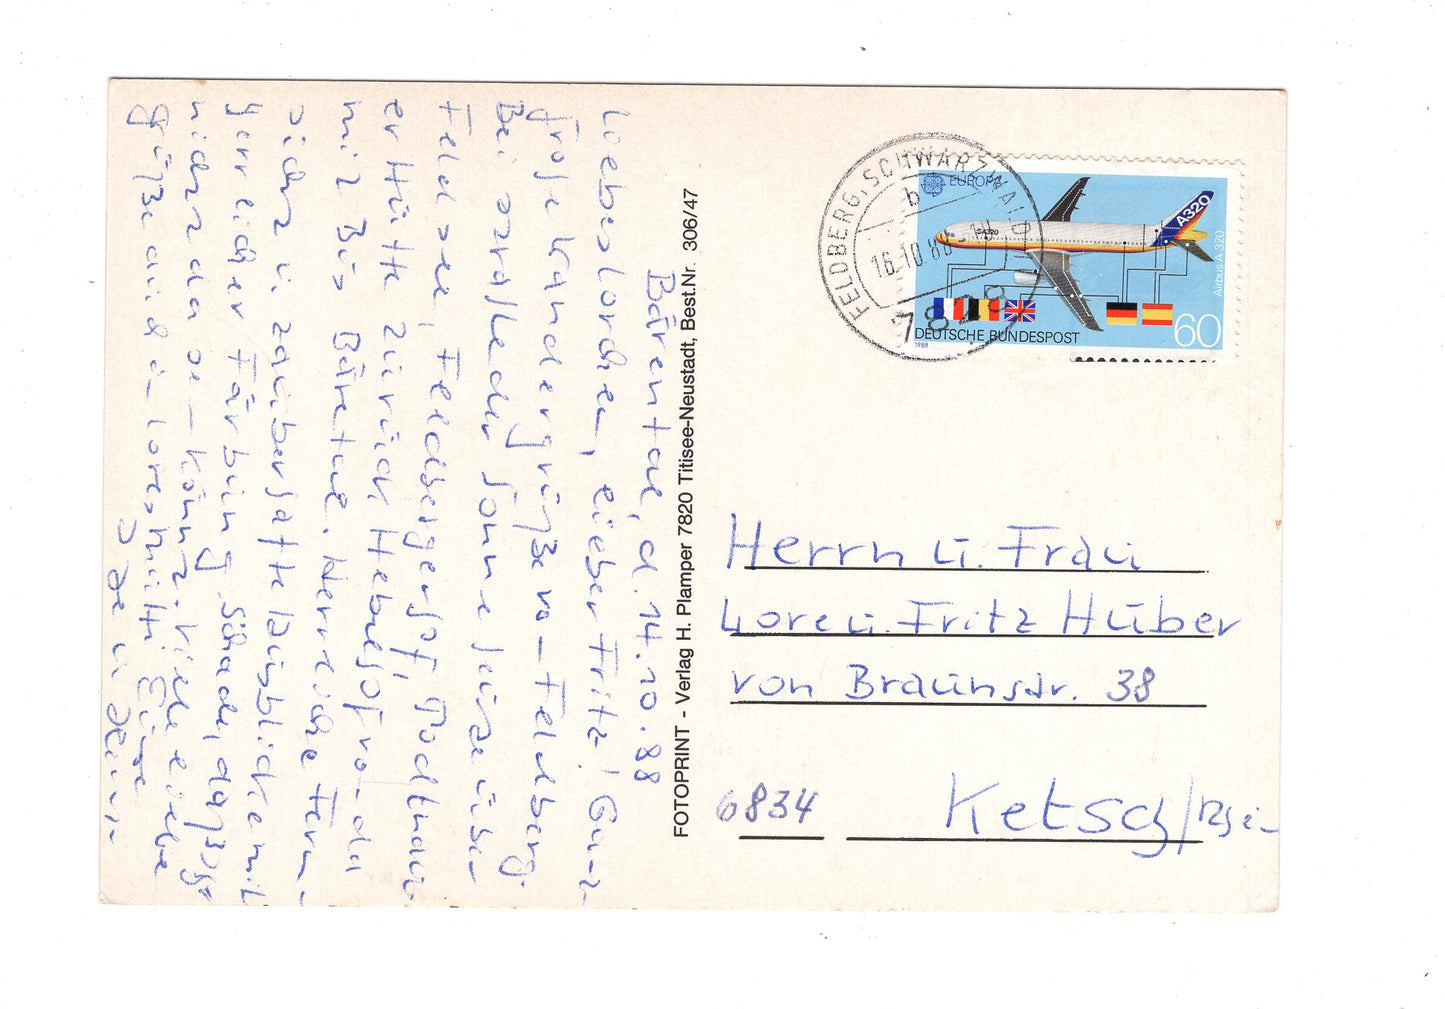 Bärental, d. 14.10.88
Liebes Lorchen, lieber Fritz! Ganz
große Wandergrüße vom Feldberg.
Bei strahlender Sonne ging's über
Feldsee, Feldbergerhof, Todtnau-
er Hütte zurück Hebelhof von da
mit Bus Bärental. Herrliche Fern-
sicht u. zauberhafte Ausblicke mit
herrlicher Färbung. Schade, daß ihr
nicht da sein könnt. Viele liebe
Grüße auch an Eure
FOTOPRINT - Verlag H. Plamper 7820 Titisee-Neustadt, Best.Nr. 306/47
FELDBERG, SCHWARZWALD
b
16.10.88
7828
EUROPA
A320
A320
Airbus A 320
DEUTSCHE BUNDESPOST
60
1988
Herrn u. Frau
Lore u. Fritz Huber
von Braunstr. 38
6834 Ketsch/Rhein